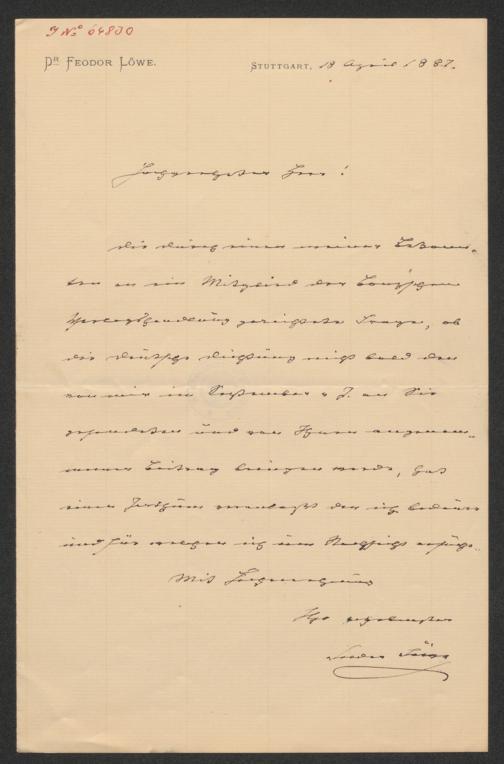 J No 64830
Dr Feodor Löwe.
Stuttgart, 18 April 1887.
Hochgeehrter Herr!
Die durch einen meiner Bekann-
ten an ein Mitglied der Bong'schen
Verlagshandlung gerichtete Frage, ob
die deutsche Dichtung nicht bald den
von mir im September v. J. an Sie
gesendeten und von Ihnen angenom-
menen Beitrag bringen werde, hat
einen Irrthum veranlaßt den ich bedaure
und für welchen ich um Nachsicht ersuche.
Mit Hochachtung
Ihr ergebenster
Feodor Löwe